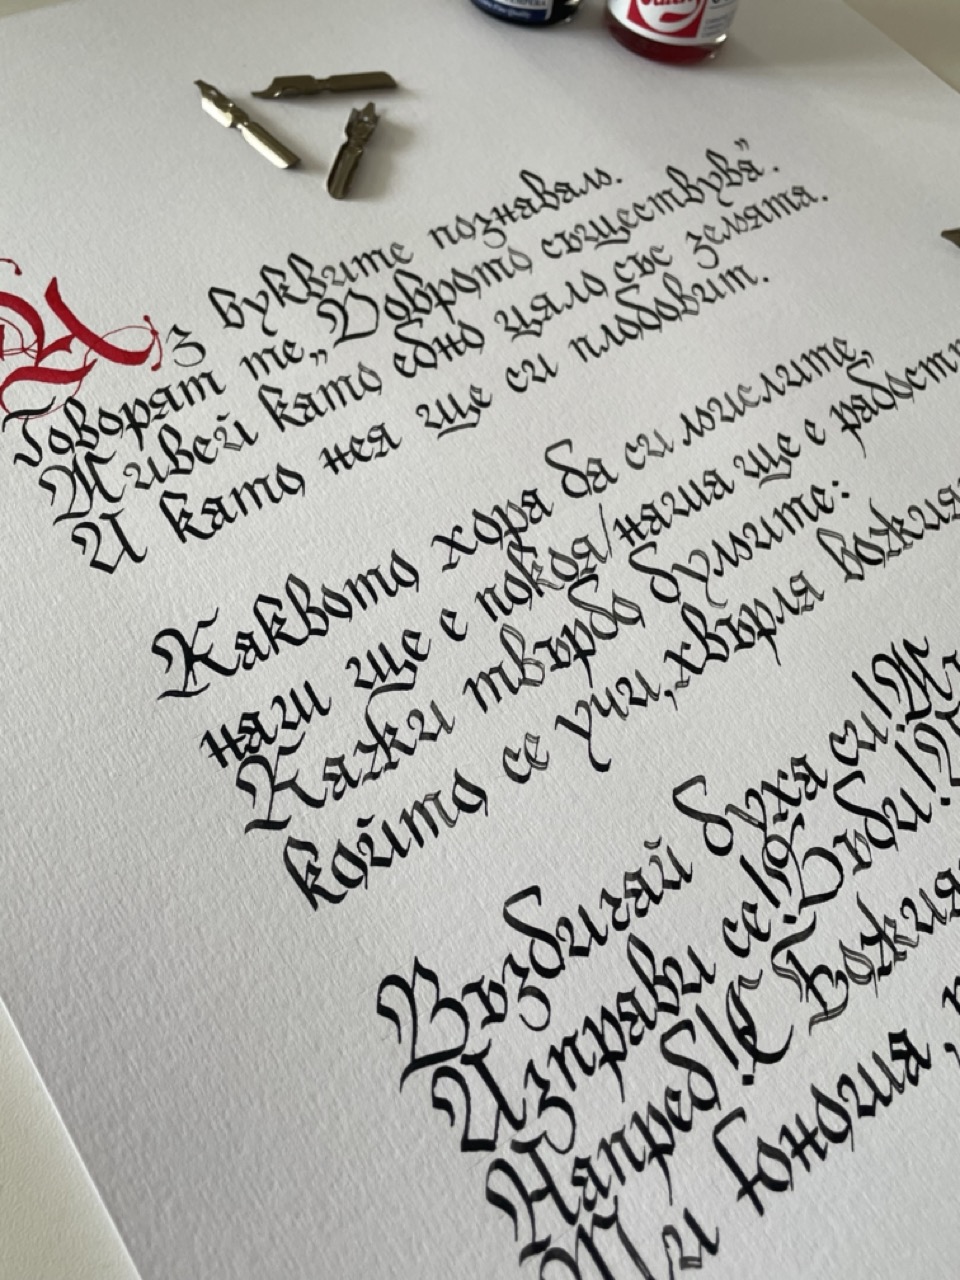 Аз буквите познавам.
Говорят те „Доброто съществува“.
Живей като едно цяло със земята.
И като нея ще си плодовит.
Каквото хора да си мислите,
наш ще е покоя/наша ще е
Кажи твърдо думите:
който се учи, хвърля
Въздигай духа си!
Изправи се! Бъди!
Напред! С Божия
Ти юноша,